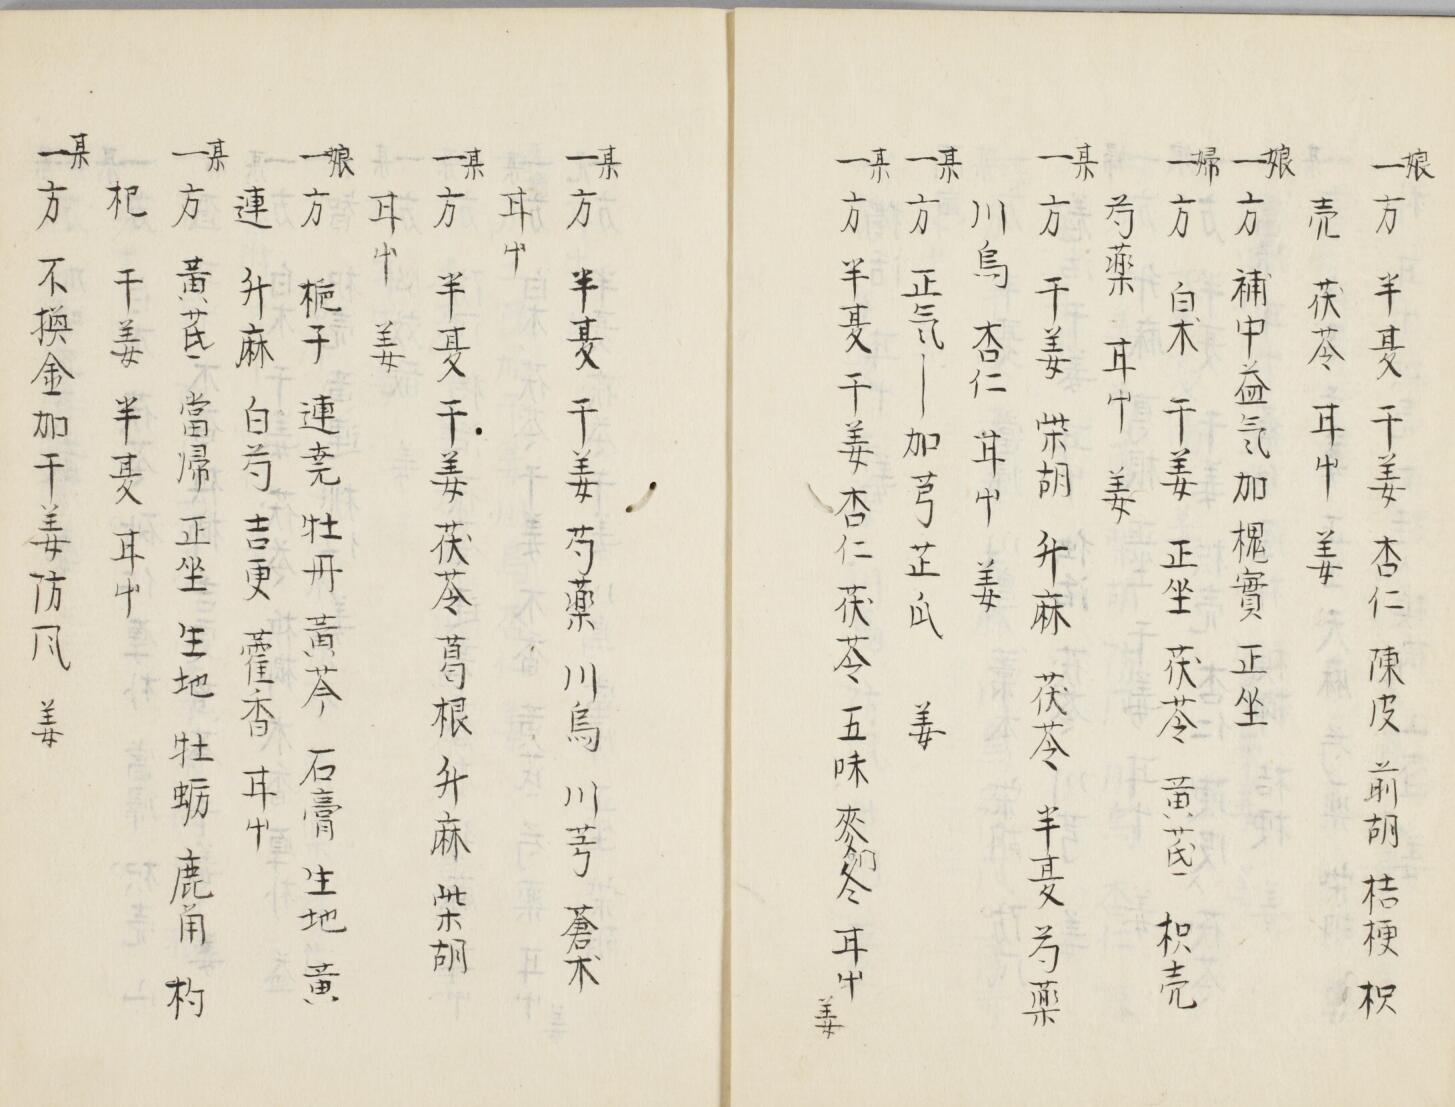 一娘方 半夏 干姜 杏仁 陳皮 前胡 桔梗 枳
売 茯苓 耳屮 姜
一娘方 補中益気加槐實 正坐
一婦方 白朮 干姜 正坐 茯苓 黄芪 枳売
芍薬 耳屮 姜
一某方 干姜 柴胡 升麻 茯苓 半夏 芍薬
川烏 杏仁 耳屮 姜
一某方 正気― 加芎芷 姜
一某方 半夏 干姜 杏仁 茯苓 五味 麥門冬 耳屮 姜
一某方 半夏 干姜 芍薬 川烏 川芎 蒼朮
耳屮
一某方 半夏 干姜 茯苓 葛根 升麻 柴胡
耳屮 姜
一娘方 梔子 連尭 牡丹 黄芩 石膏 生地 黄
連 升麻 白芍 吉更 藿香 耳屮
一某方 黄芪 當帰 正坐 生地 牡蛎 鹿角 枸
杞 干姜 半夏 耳屮
一某方 不換金加干姜防风 姜